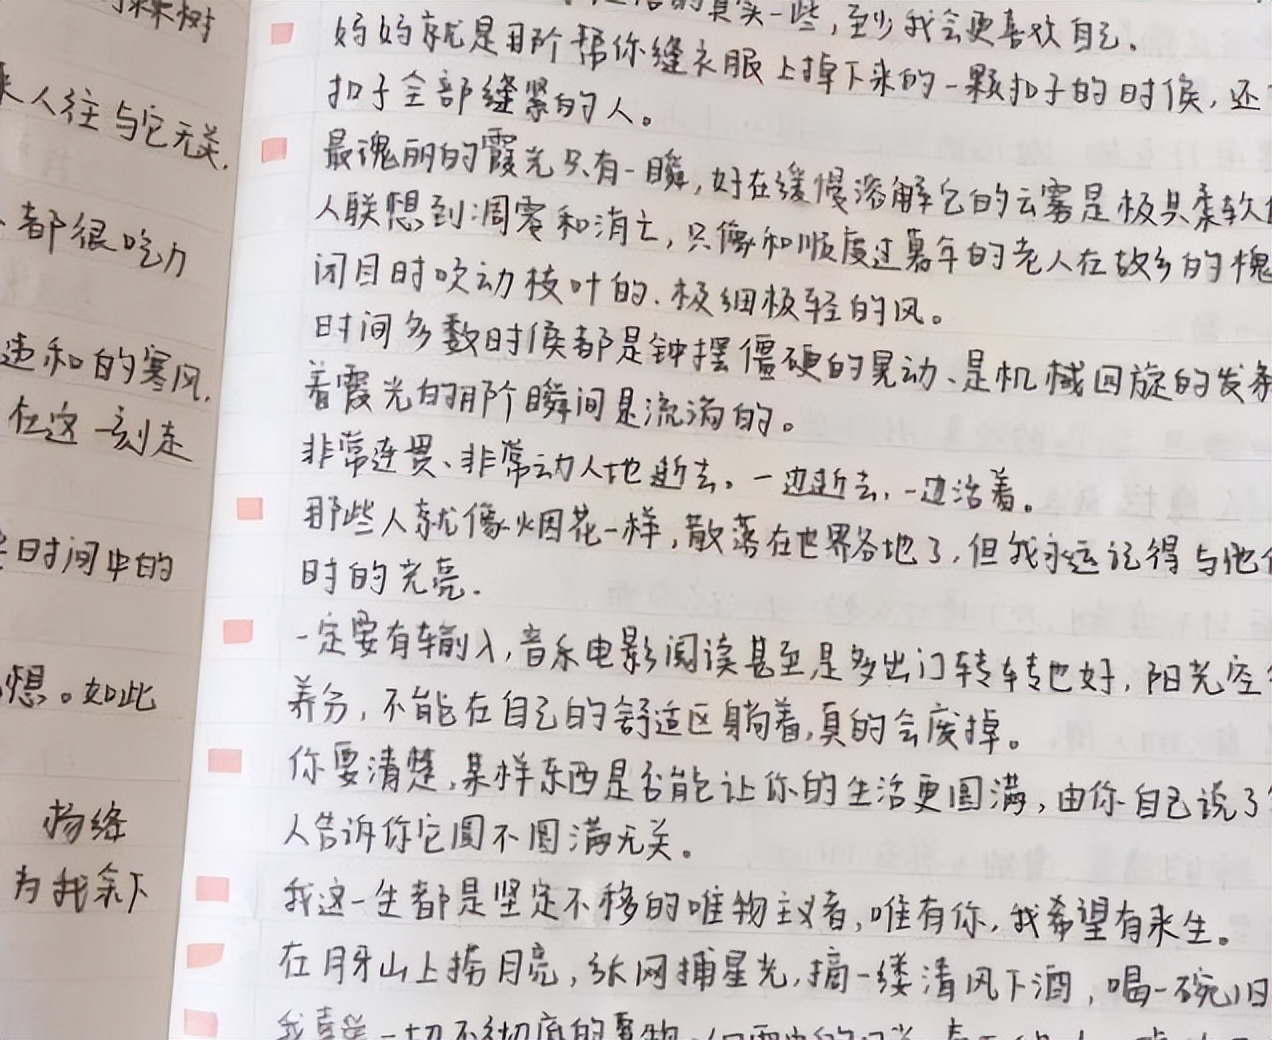 树
人往与它无关.
都很吃力
违和的寒风.
在这一刻走
日时间中的
想。如此
杨绛
为我余下
的真实一些,至少我会更喜欢自己.
妈妈就是那阶帮你缝衣服上掉下来的一颗扣子的时候,还
扣子全部缝紧的人。
最瑰丽的霞光只有一瞬,好在缓慢溶解它的云雾是极具柔软
人联想到凋零和消亡,只像和顺度过暮年的老人在故乡的槐
闭目时吹动枝叶的、极细极轻的风。
时间多数时候都是钟摆僵硬的晃动、是机械回旋的发条
着霞光的那阶瞬间是流淌的。
非常连贯、非常动人地逝去。一边逝去,一边活着。
那些人就像烟花一样,散落在世界各地了,但我永远记得与他
时的光亮.
一定要有输入,音乐电影阅读甚至是多出门转转也好,阳光空
养分,不能在自己的舒适区躺着,真的会废掉。
你要清楚,某样东西是否能让你的生活更圆满,由你自己说了
人告诉你它圆不圆满无关。
我这一生都是坚定不移的唯物主义者,唯有你,我希望有来生。
在月牙山上捞月亮,张网捕星光,摘一缕清风下酒,喝一碗旧
我喜欢一切不彻底的事物.